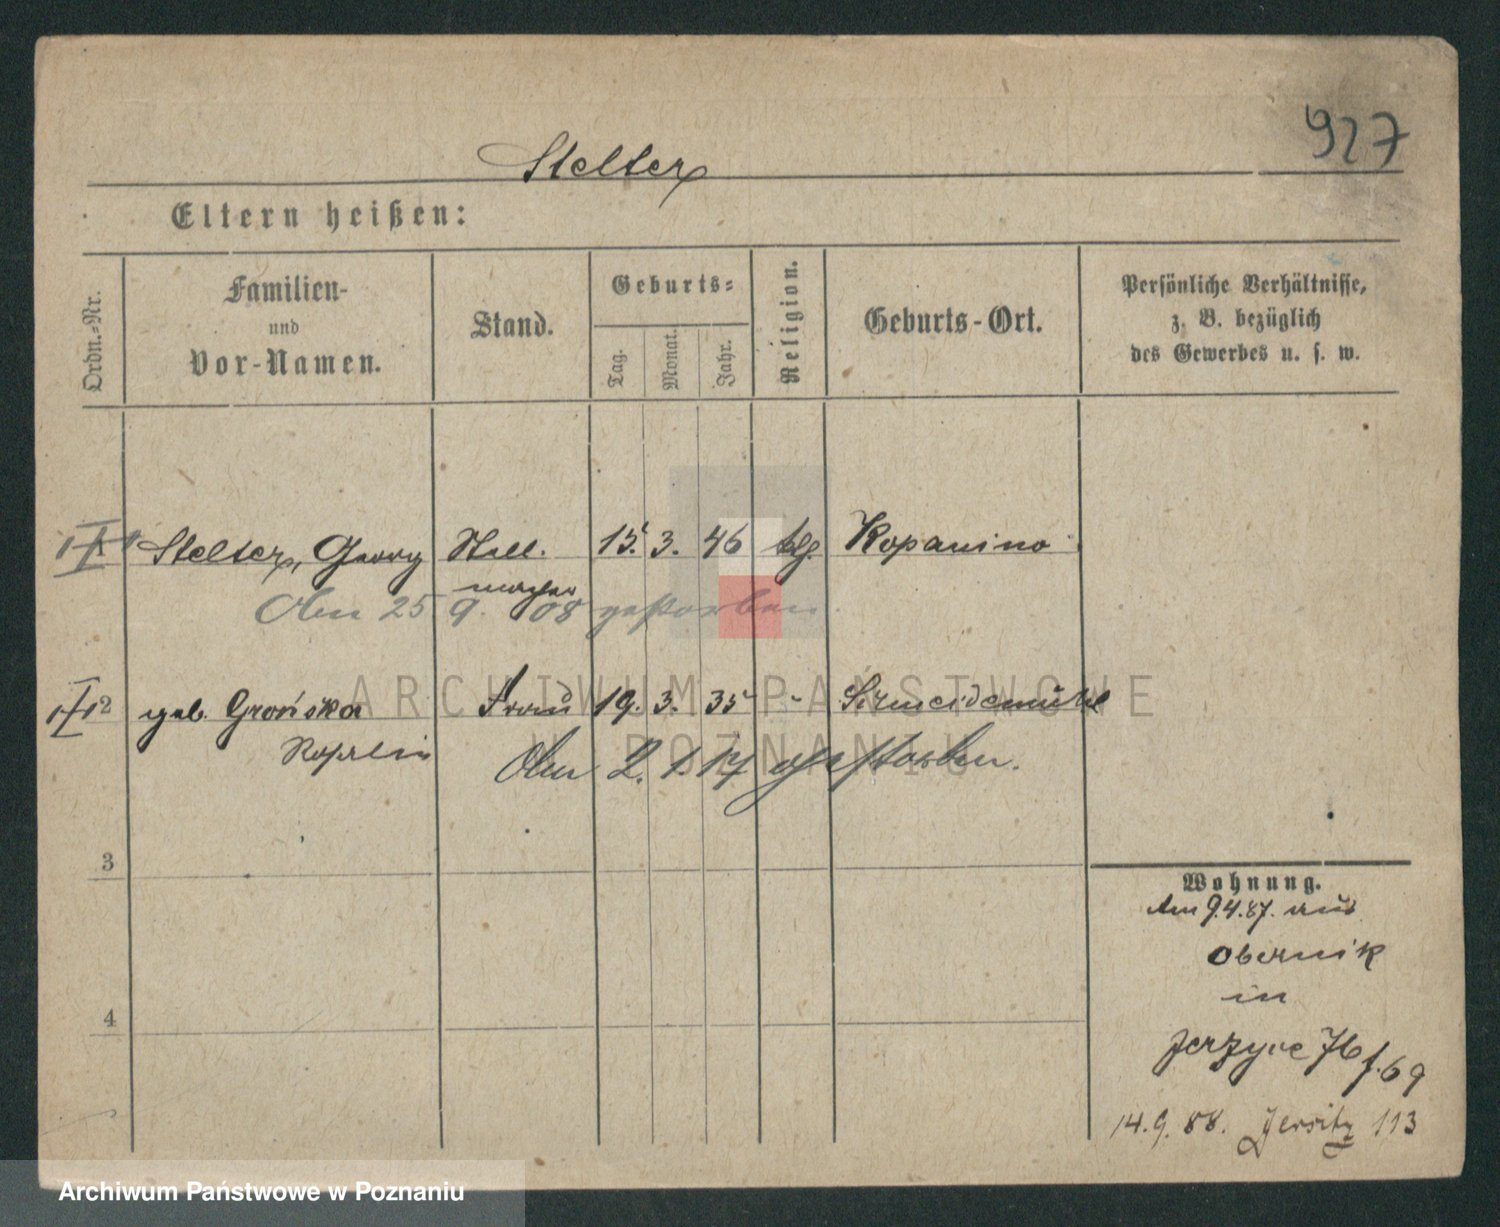 927
Stelter
Eltern heißen:
Ordn.-Nr.
Familien-
und
Vor-Namen.
Stand.
Geburts-
Tag.
Monat.
Jahr.
Religion.
Geburts-Ort.
Persönliche Verhältnisse,
z. B. bezüglich
des Gewerbes u. s. w.
1 Stelter, Georg Stell. 15. 3. 46 Kopanino
macher
Am 25 9. 08 gestorben
ARCHIWUM PAŃSTWOWE
W POZNANIU
2 geb. Grońska Frau 19. 3. 35 - Schneidemühl
Am 2. 1. 17 gestorben.
3
4
Wohnung.
Am 9.4.87. aus
Obernik
in
Jerzyce 76 f. 69
14.9.88. Jersitz 113
Archiwum Państwowe w Poznaniu